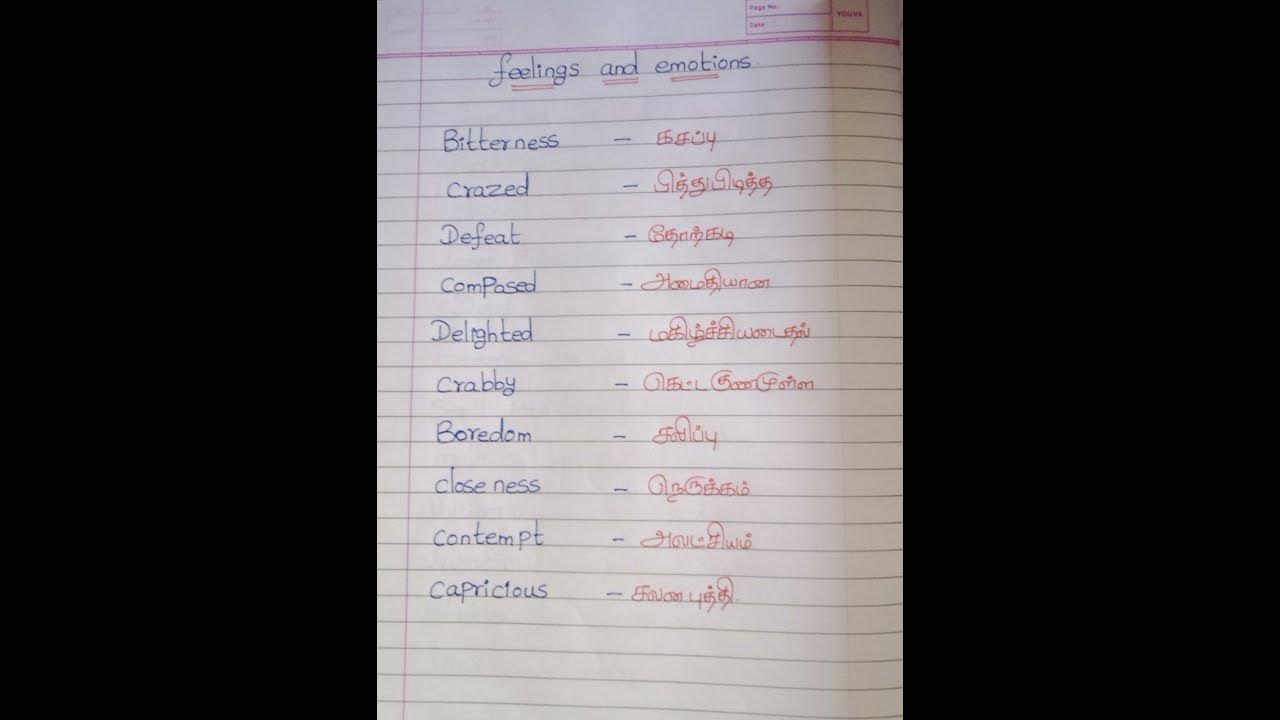 Page No.:
Date:
YOUVA
feelings and emotions.
Bitterness - கசப்பு
Crazed - பித்துபிடித்த
Defeat - தோற்கடி
Composed - அமைதியான
Delighted - மகிழ்ச்சியடைதல்
Crabby - கெட்ட குணமுள்ள
Boredom - சலிப்பு
Close ness - நெருக்கம்
Contempt - அலட்சியம்
Capricious - சலன புத்தி.